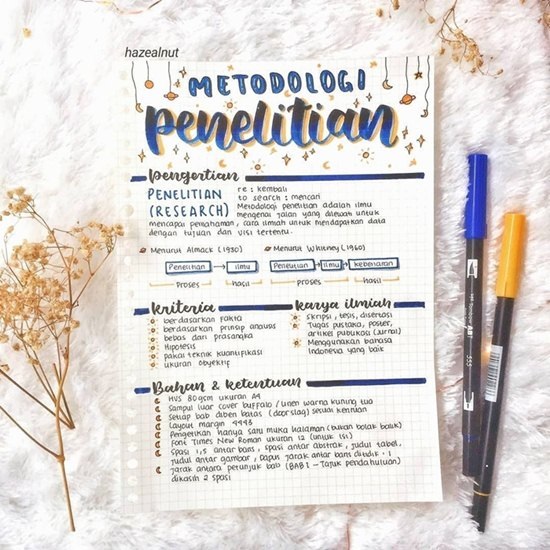 hazealnut
METODOLOGI
penelitian
pengertian
PENELITIAN (RESEARCH)
re : kembali
to search : mencari
Metodologi penelitian adalah ilmu
mengenai jalan yang dilewati untuk
mencapai pemahaman, cara ilmiah untuk mendapatkan data
dengan tujuan dan visi tertentu.
Menurut Almack (1930)
Penelitian → ilmu
Proses hasil
Menurut Whitney (1960)
Penelitian → ilmu → kebenaran
Proses hasil
kriteria
berdasarkan fakta
berdasarkan prinsip analisis
bebas dari prasangka
Hipotesis
pakai teknik kuantifikasi
ukuran obyektif
karya ilmiah
skripsi, tesis, disertasi
Tugas pustaka, poster,
artikel publikasi (jurnal)
Menggunakan bahasa
Indonesia yang baik
Bahan & ketentuan
HVS 80gsm ukuran A4
Sampul luar cover buffalo / linen warna kuning tua
Setiap bab diberi batas (doorslag) sesuai
Layout margin 4443
Pengetikan hanya satu muka halaman (bukan bolak balik)
Font Times New Roman ukuran 12 (untuk isi)
Spasi 1,5 antar baris, spasi antar abstrak, judul tabel,
judul antar gambar, dapus jarak antar baris : 1
jarak antara petunjuk bab (BAB I - Tajuk pendahuluan)
dikasih 2 spasi